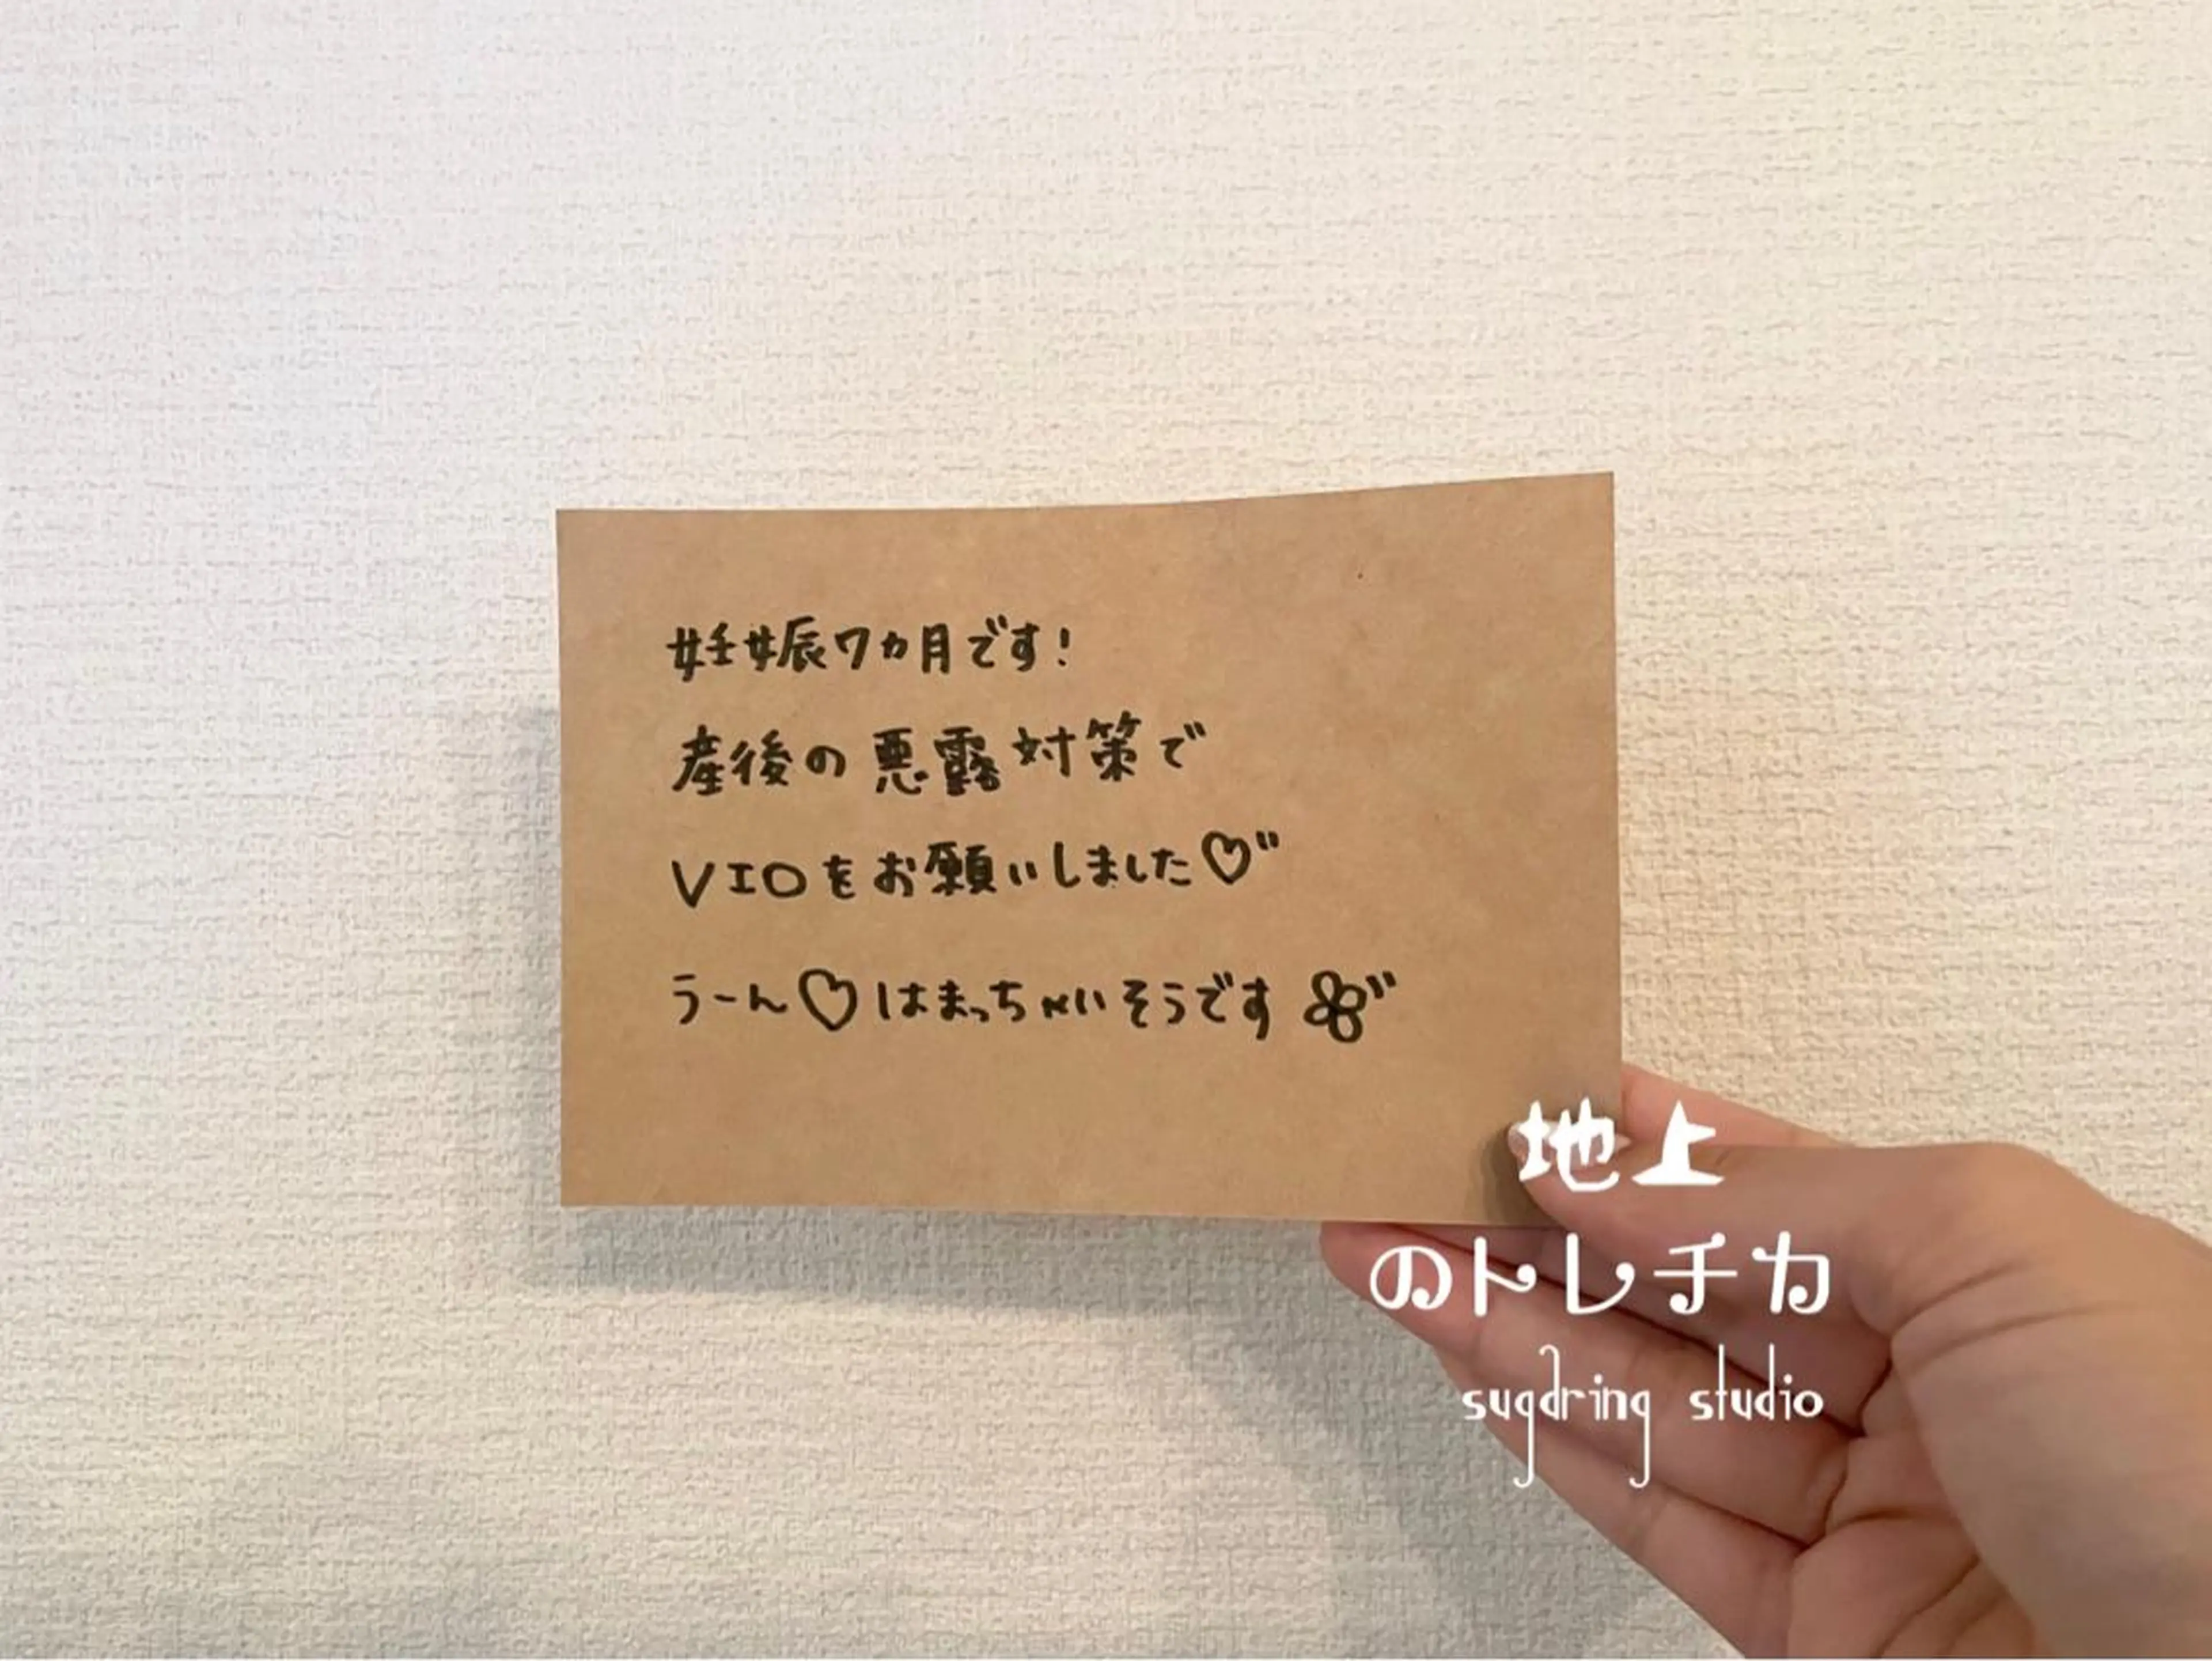 妊娠7カ月です!
産後の悪露対策で
VIOをお願いしました♡"
うーん♡はまっちゃいそうです"
地上
のトレチカ
sugaring studio